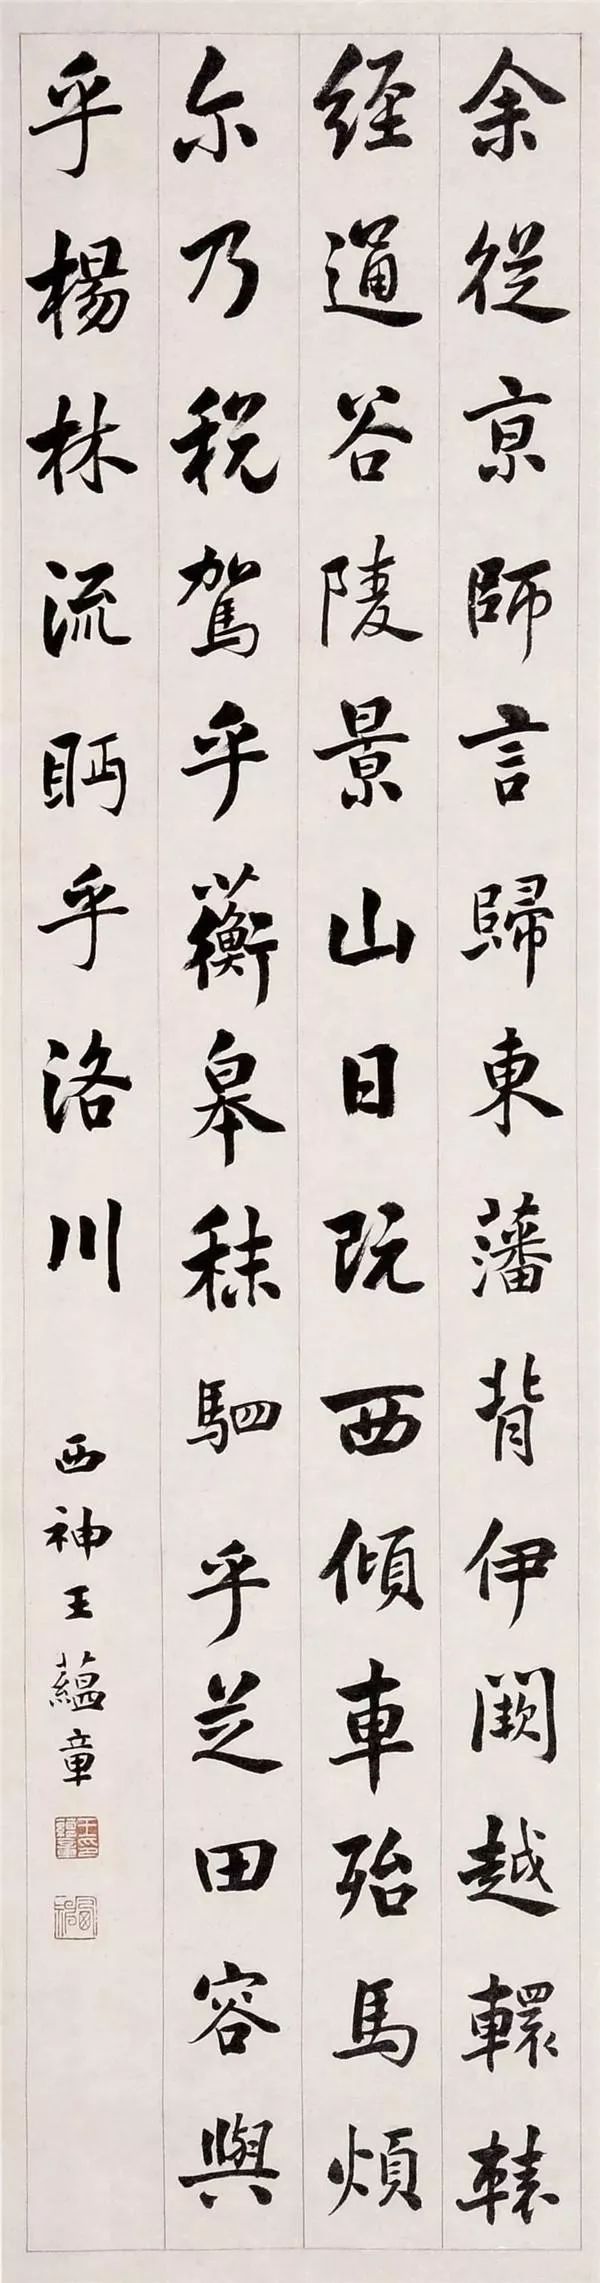 余從京師言歸東藩背伊闕越轘轅
經通谷陵景山日既西傾車殆馬煩
尒乃税駕乎蘅皋秣駟乎芝田容與
乎楊林流眄乎洛川
西神王蘊章
王印蘊章